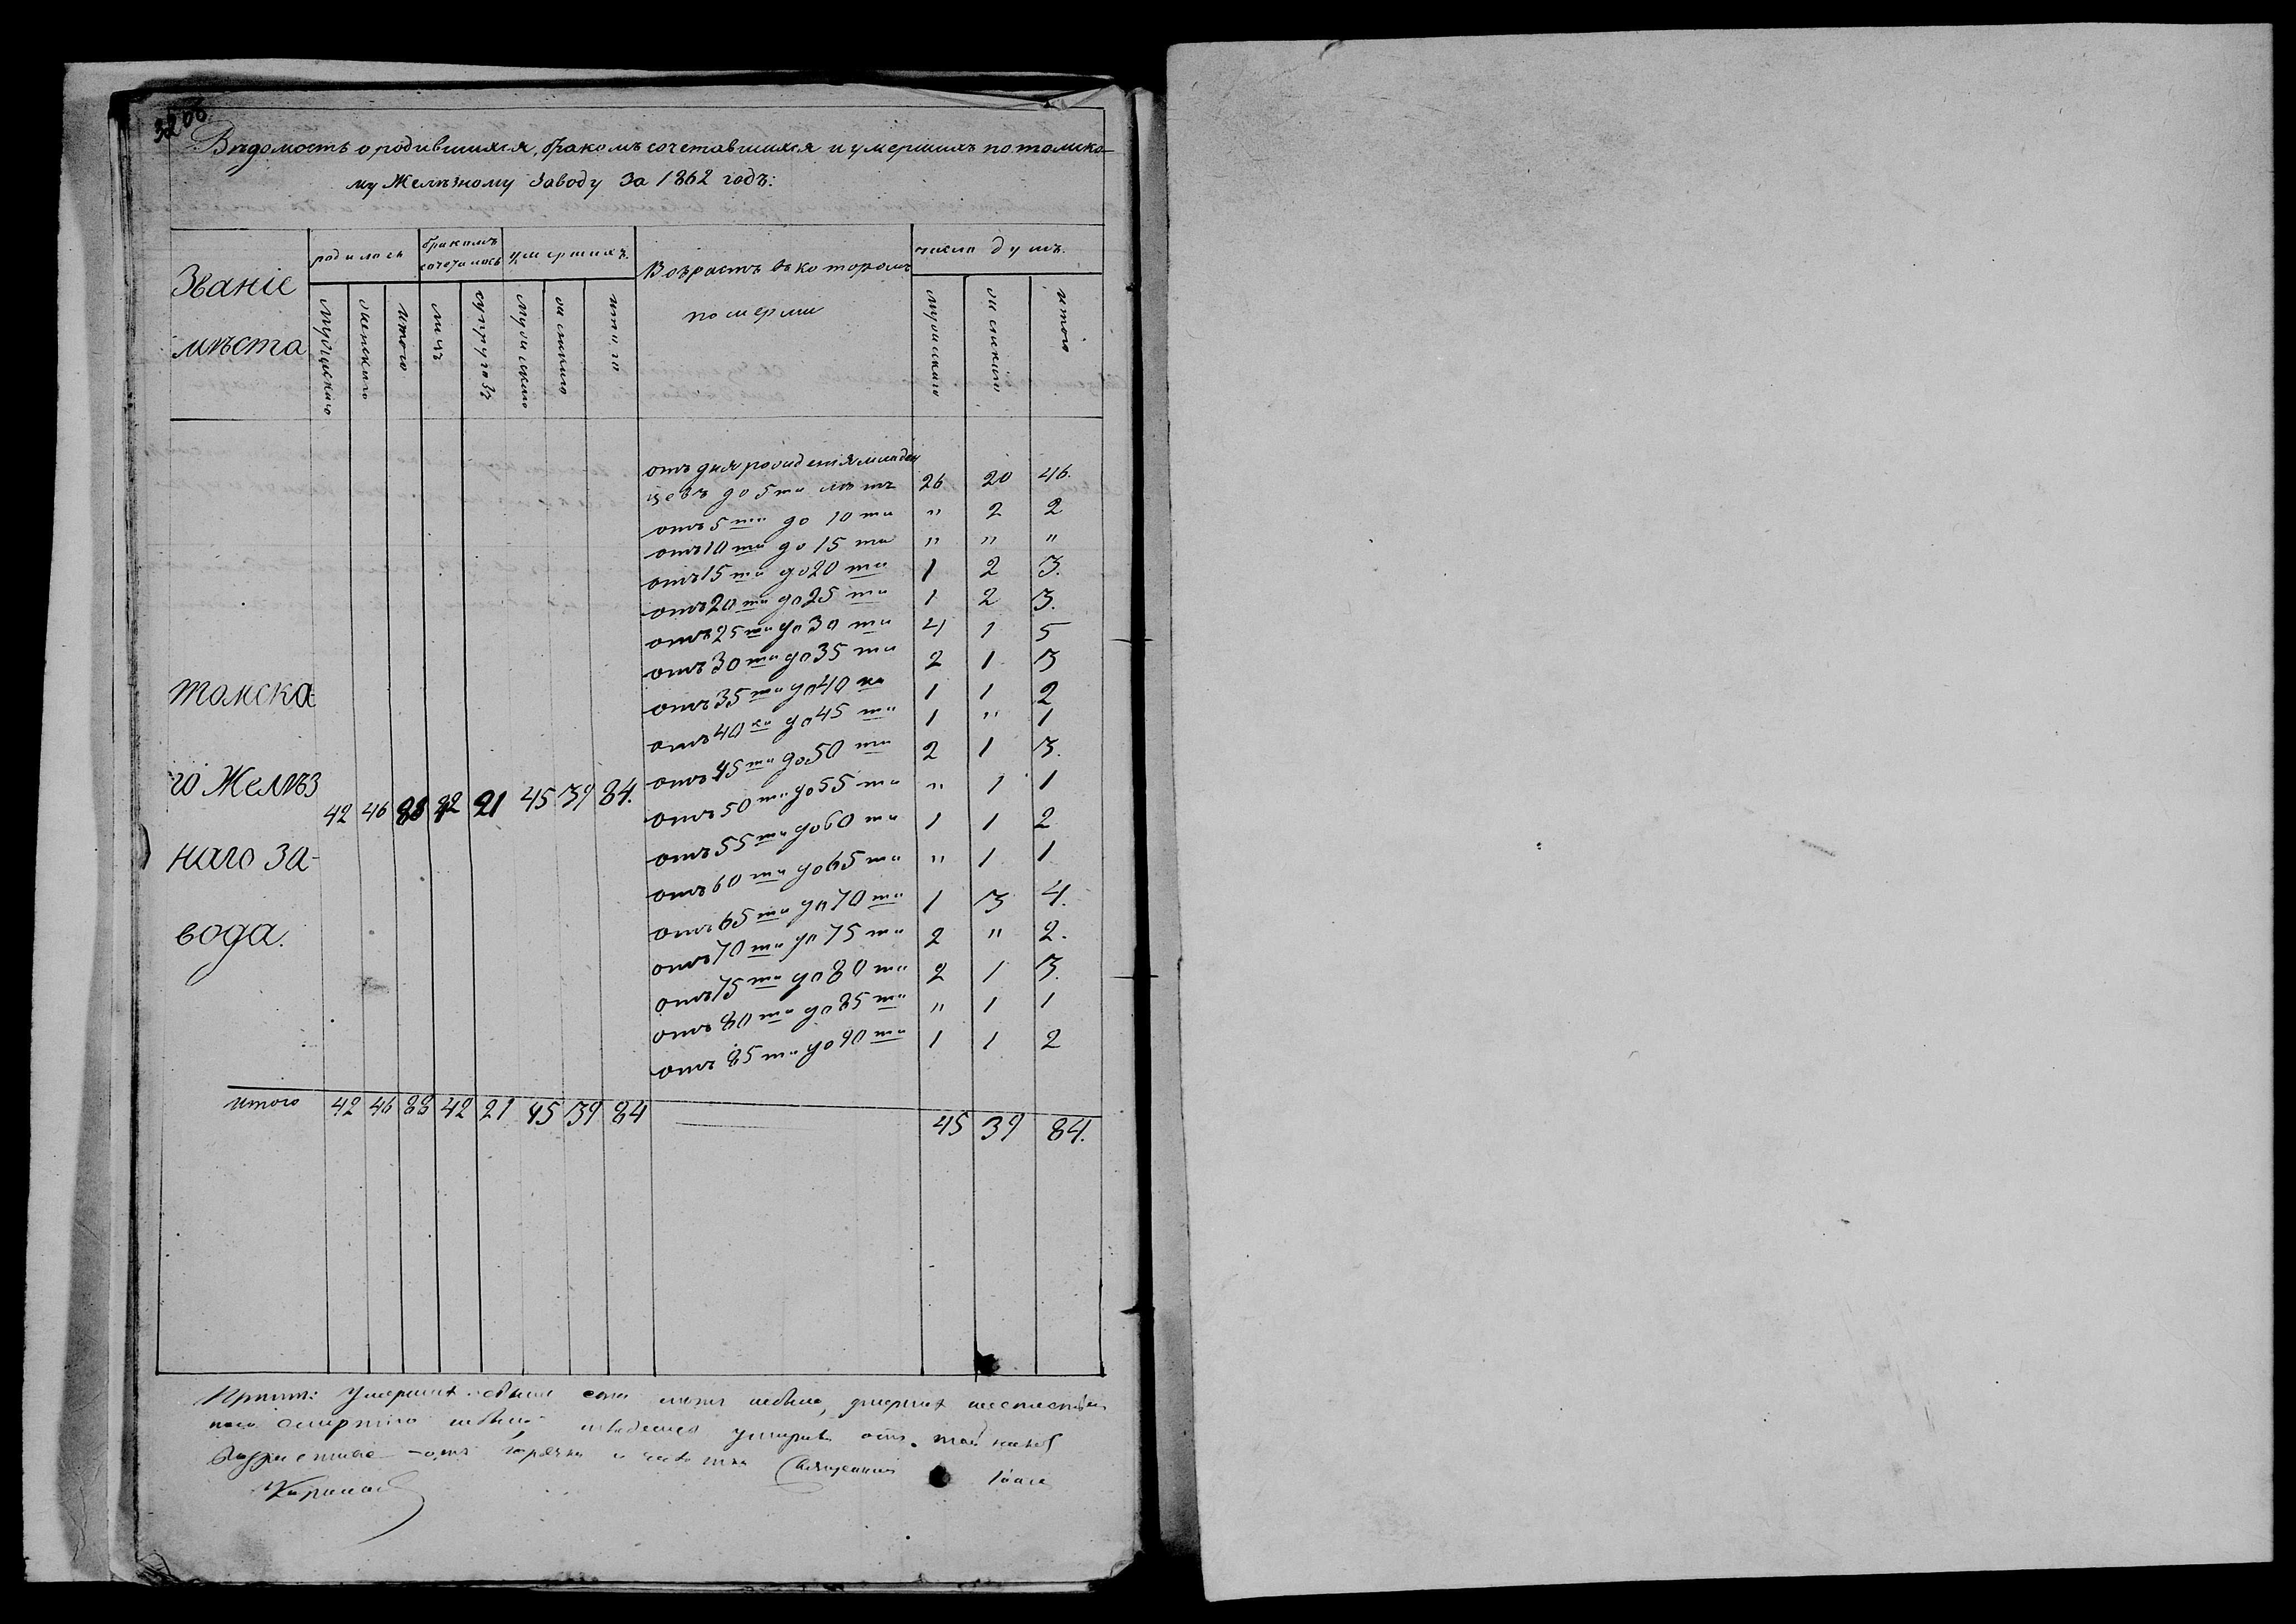 Вѣдомость о родившихся, бракомъ сочетавшихся и умершихъ по томско-
му Желѣзному заводу За 1862 годъ:
Званіе мѣста | родилось | бракомъ сочеталось | умершихъ | Возрастъ въ которомъ померли | число душъ.
мужескаго | женскаго | итого | лицъ | супруговъ | мужескаго | женскаго | итого | мужескаго | женскаго | итого
отъ дня рожденія младен
цевъ до 5ти лѣтъ 26 20 46.
отъ 5ти до 10ти " 2 2
отъ 10ти до 15ти " " "
отъ 15ти до 20ти 1 2 3.
отъ 20ти до 25ти 1 2 3.
отъ 25ти до 30ти 4 1 5
отъ 30ти до 35ти 2 1 3
отъ 35ти до 40ка 1 1 2
отъ 40ка до 45ти 1 " 1
отъ 45ти до 50ти 2 1 3.
отъ 50ти до 55ти " 1 1
отъ 55ти до 60ти 1 1 2
отъ 60ти до 65ти " 1 1
отъ 65ти до 70ти 1 3 4.
отъ 70ти до 75ти 2 " 2.
отъ 75ти до 80ти 2 1 3.
отъ 80ти до 85ти " 1 1
отъ 85ти до 90ти 1 1 2
томска-
го Желѣз
42 46 88 42 21 45 39 84.
наго За-
вода.
итого 42 46 88 42 21 45 39 84 45 39 84.
умерших
смертію
отъ горячки и Священник Іоан